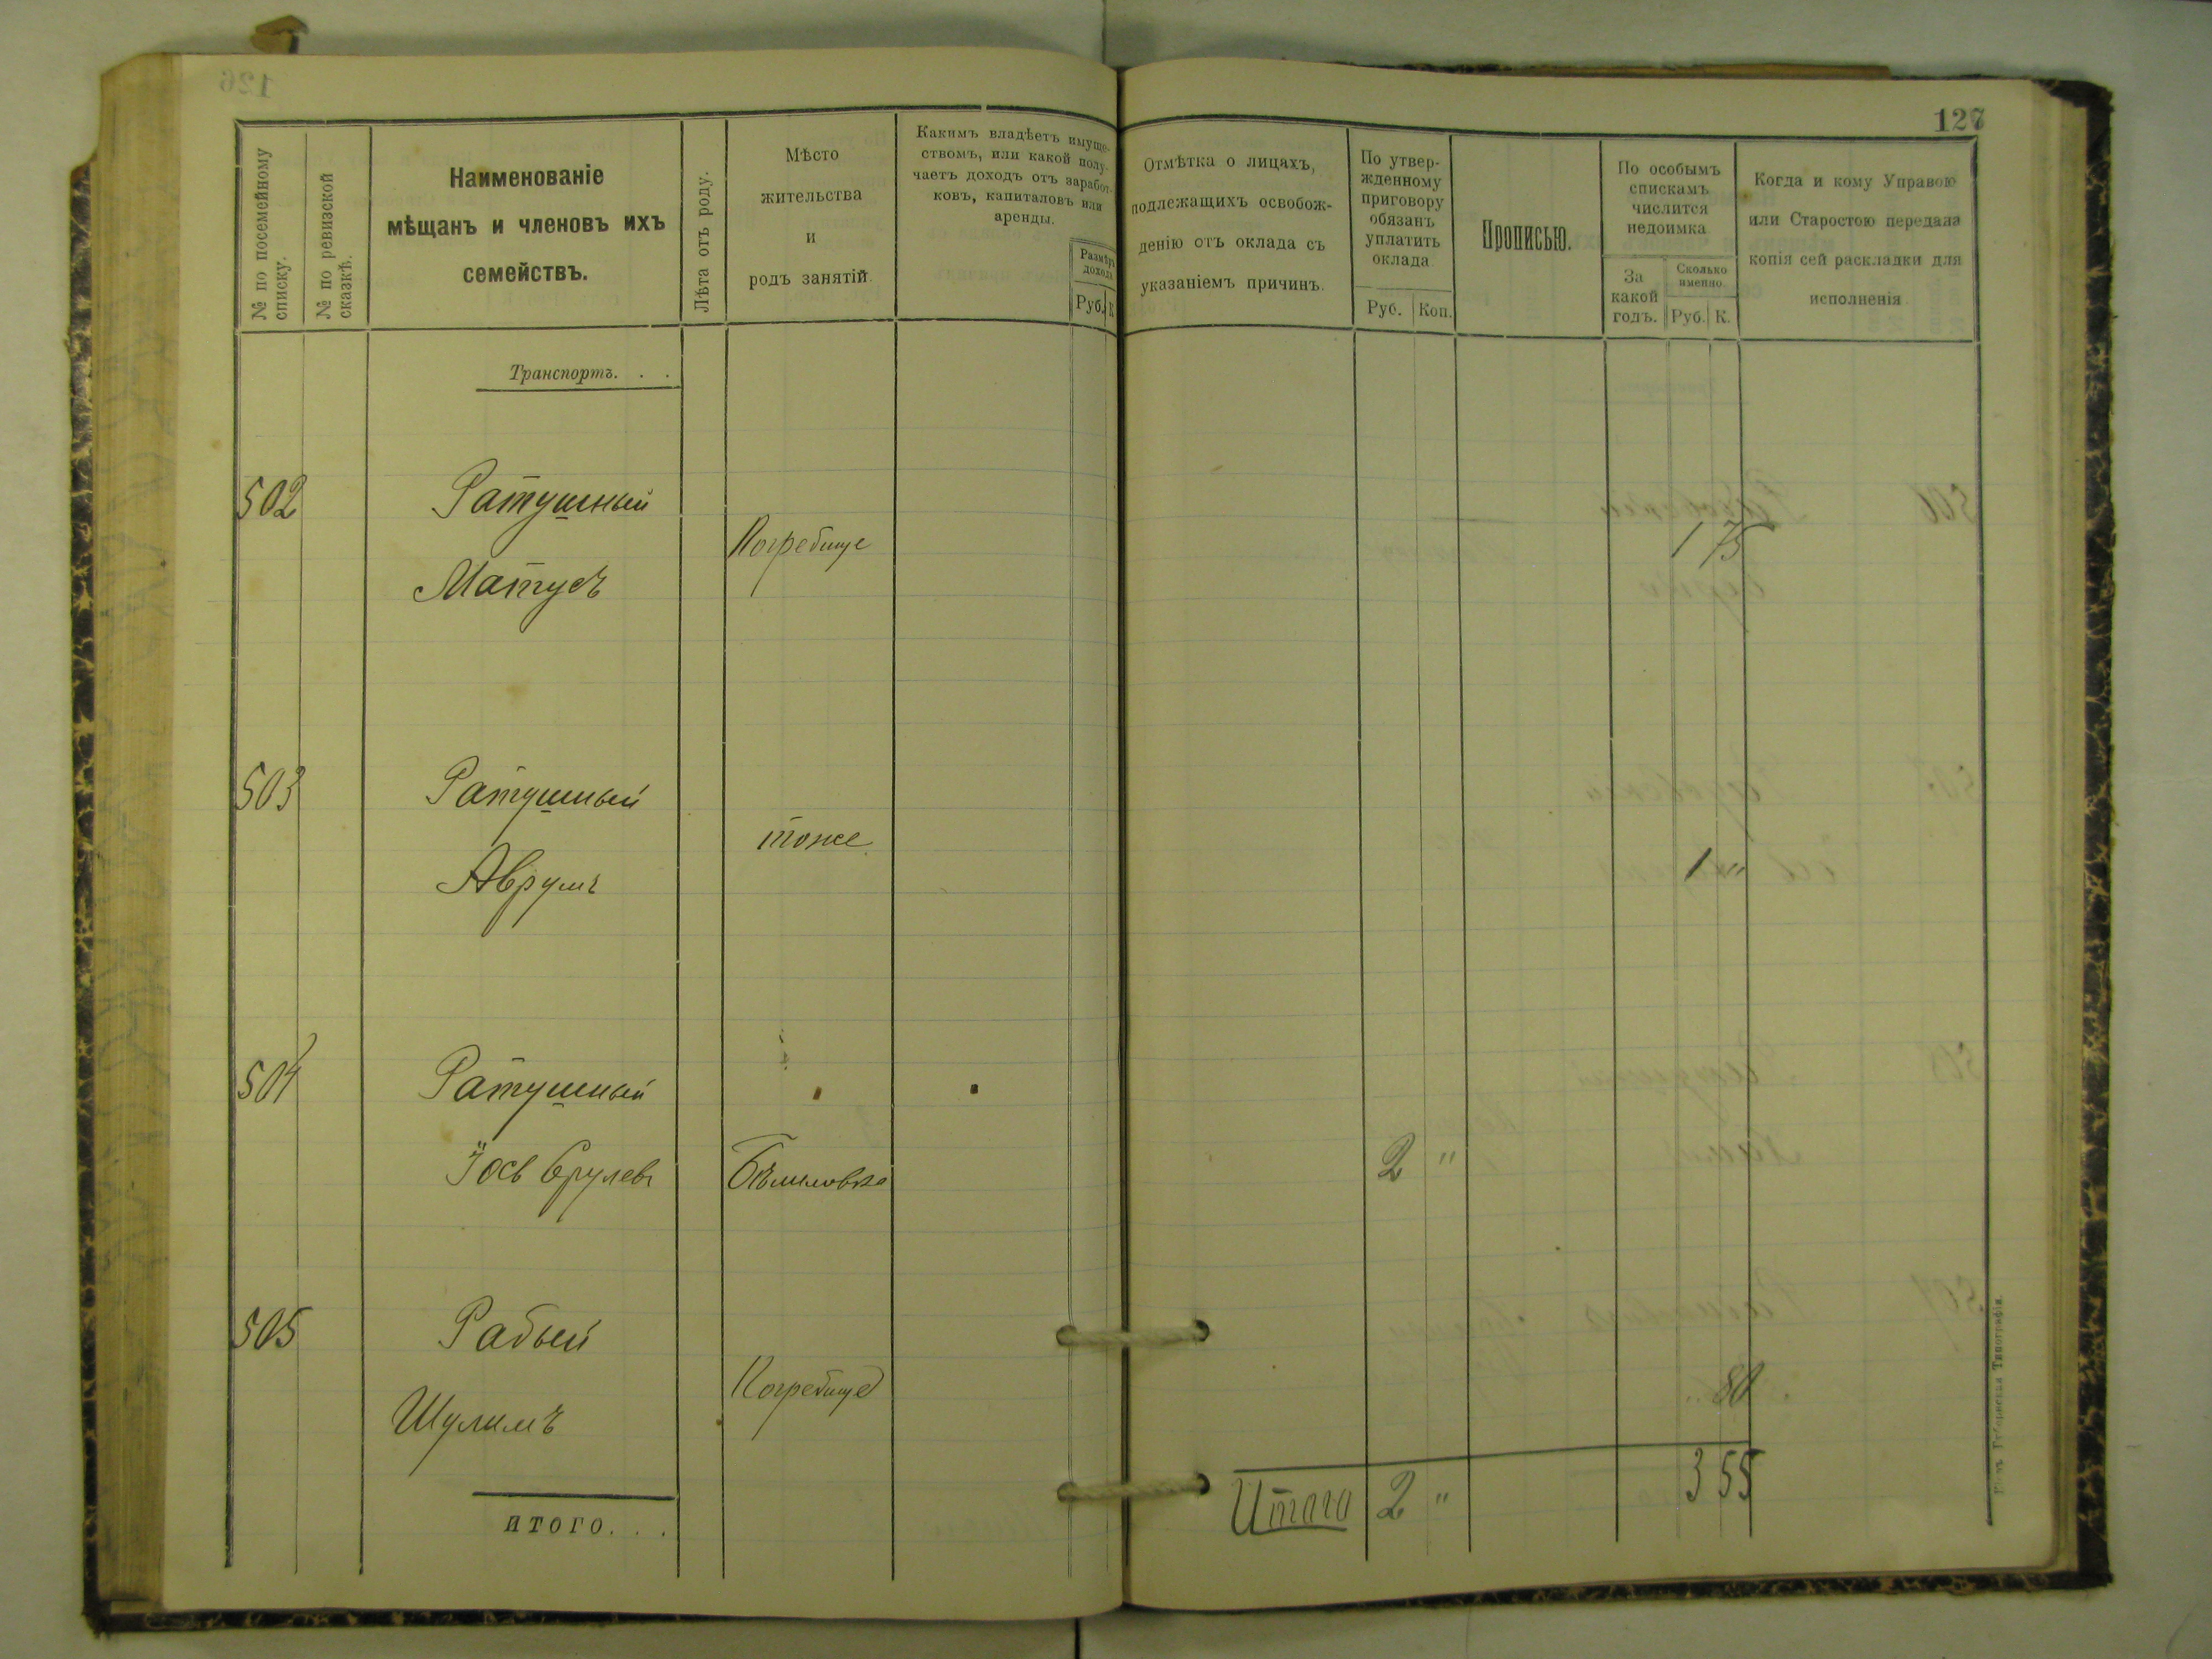 127
№ по посемейному списку.
№ по ревизской сказкѣ.
Наименованіе
мѣщанъ и членовъ ихъ
семействъ.
Лѣта отъ роду.
Мѣсто
жительства
и
родъ занятій.
Какимъ владѣетъ имуще-
ствомъ, или какой полу-
чаетъ доходъ отъ заработ-
ковъ, капиталовъ или
аренды.
Размѣръ
дохода
Руб. К.
Отмѣтка о лицахъ,
подлежащихъ освобож-
денію отъ оклада съ
указаніемъ причинъ.
По утвер-
жденному
приговору
обязанъ
уплатить
оклада
Руб. Коп.
Прописью.
По особымъ
спискамъ
числится
недоимка
За
какой
годъ.
Сколько
именно
Руб. К.
Когда и кому Управою
или Старостою передана
копія сей раскладки для
исполненія
Транспортъ. . .
502 Ратушный
Погребище 1 75
Матусъ
503 Ратушный
тоже 1 "
Аврумъ
504 Ратушный
Іось Срулевъ Бѣлиловка 2 "
505 Рабый
Погребище " 80
Шулимъ
Итого 2 " 3 55
ИТОГО. . .
Губернская Типографія.